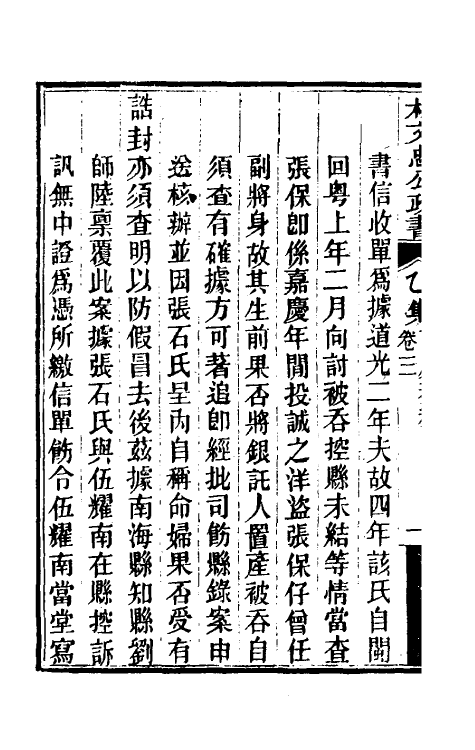 林文忠公政書 乙集 卷三
書信收單爲據道光二年夫故四年該氏自閩
回粵上年二月向討被吞控縣未結等情當查
張保卽係嘉慶年閒投誠之洋盜張保仔曾任
副將身故其生前果否將銀託人置產被吞自
須查有確據方可著追卽經批司飭縣錄案申
送核辦並因張石氏呈內自稱命婦果否受有
誥封亦須查明以防假冒去後茲據南海縣知縣劉
師陸稟覆此案據張石氏與伍耀南在縣控訴
訊無中證爲憑所繳信單飭令伍耀南當堂寫